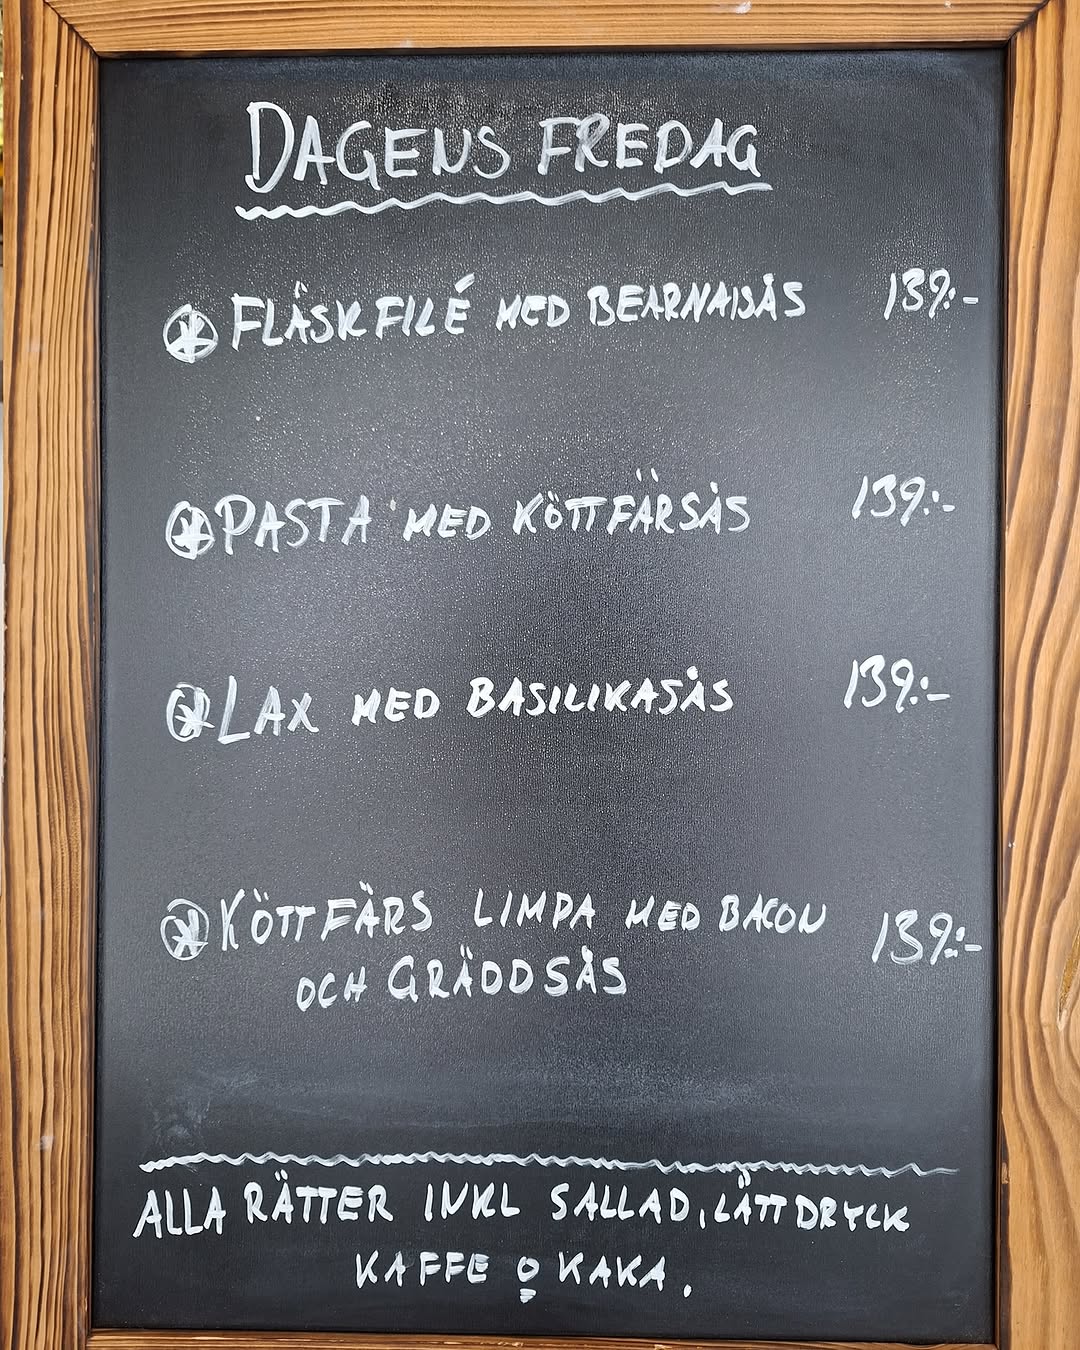 DAGENS FREDAG
FLÄSKFILÉ MED BEARNAISÅS 139:-
PASTA MED KÖTTFÄRSÅS 139:-
LAX MED BASILIKASÅS 139:-
KÖTTFÄRS LIMPA MED BACON 139:-
OCH GRÄDDSÅS
ALLA RÄTTER INKL SALLAD, LÄTTDRYCK
KAFFE O KAKA.